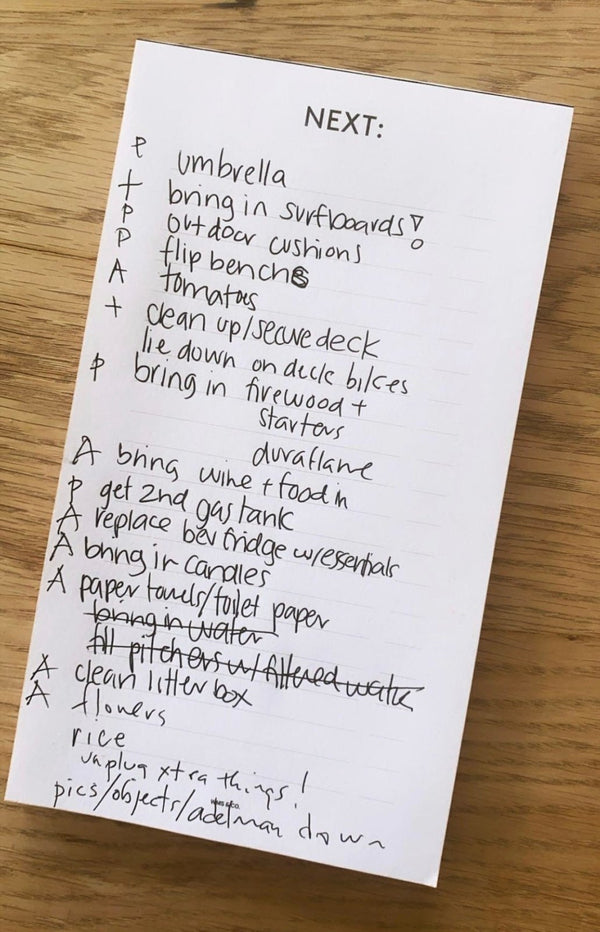 NEXT:
P umbrella
+ bring in surfboards!
P outdoor cushions
P flip benchs
A tomatoes
+ clean up/secure deck
lie down on deck bikes
P bring in firewood +
starters
duraflame
A bring wine + food in
P get 2nd gas tank
A replace bev fridge w/essentials
A bring in candles
A paper towels/toilet paper
bring in water
fill pitchers w/filtered water
A clean litter box
A flowers
rice
unplug xtra things!
pics/objects/adelman down